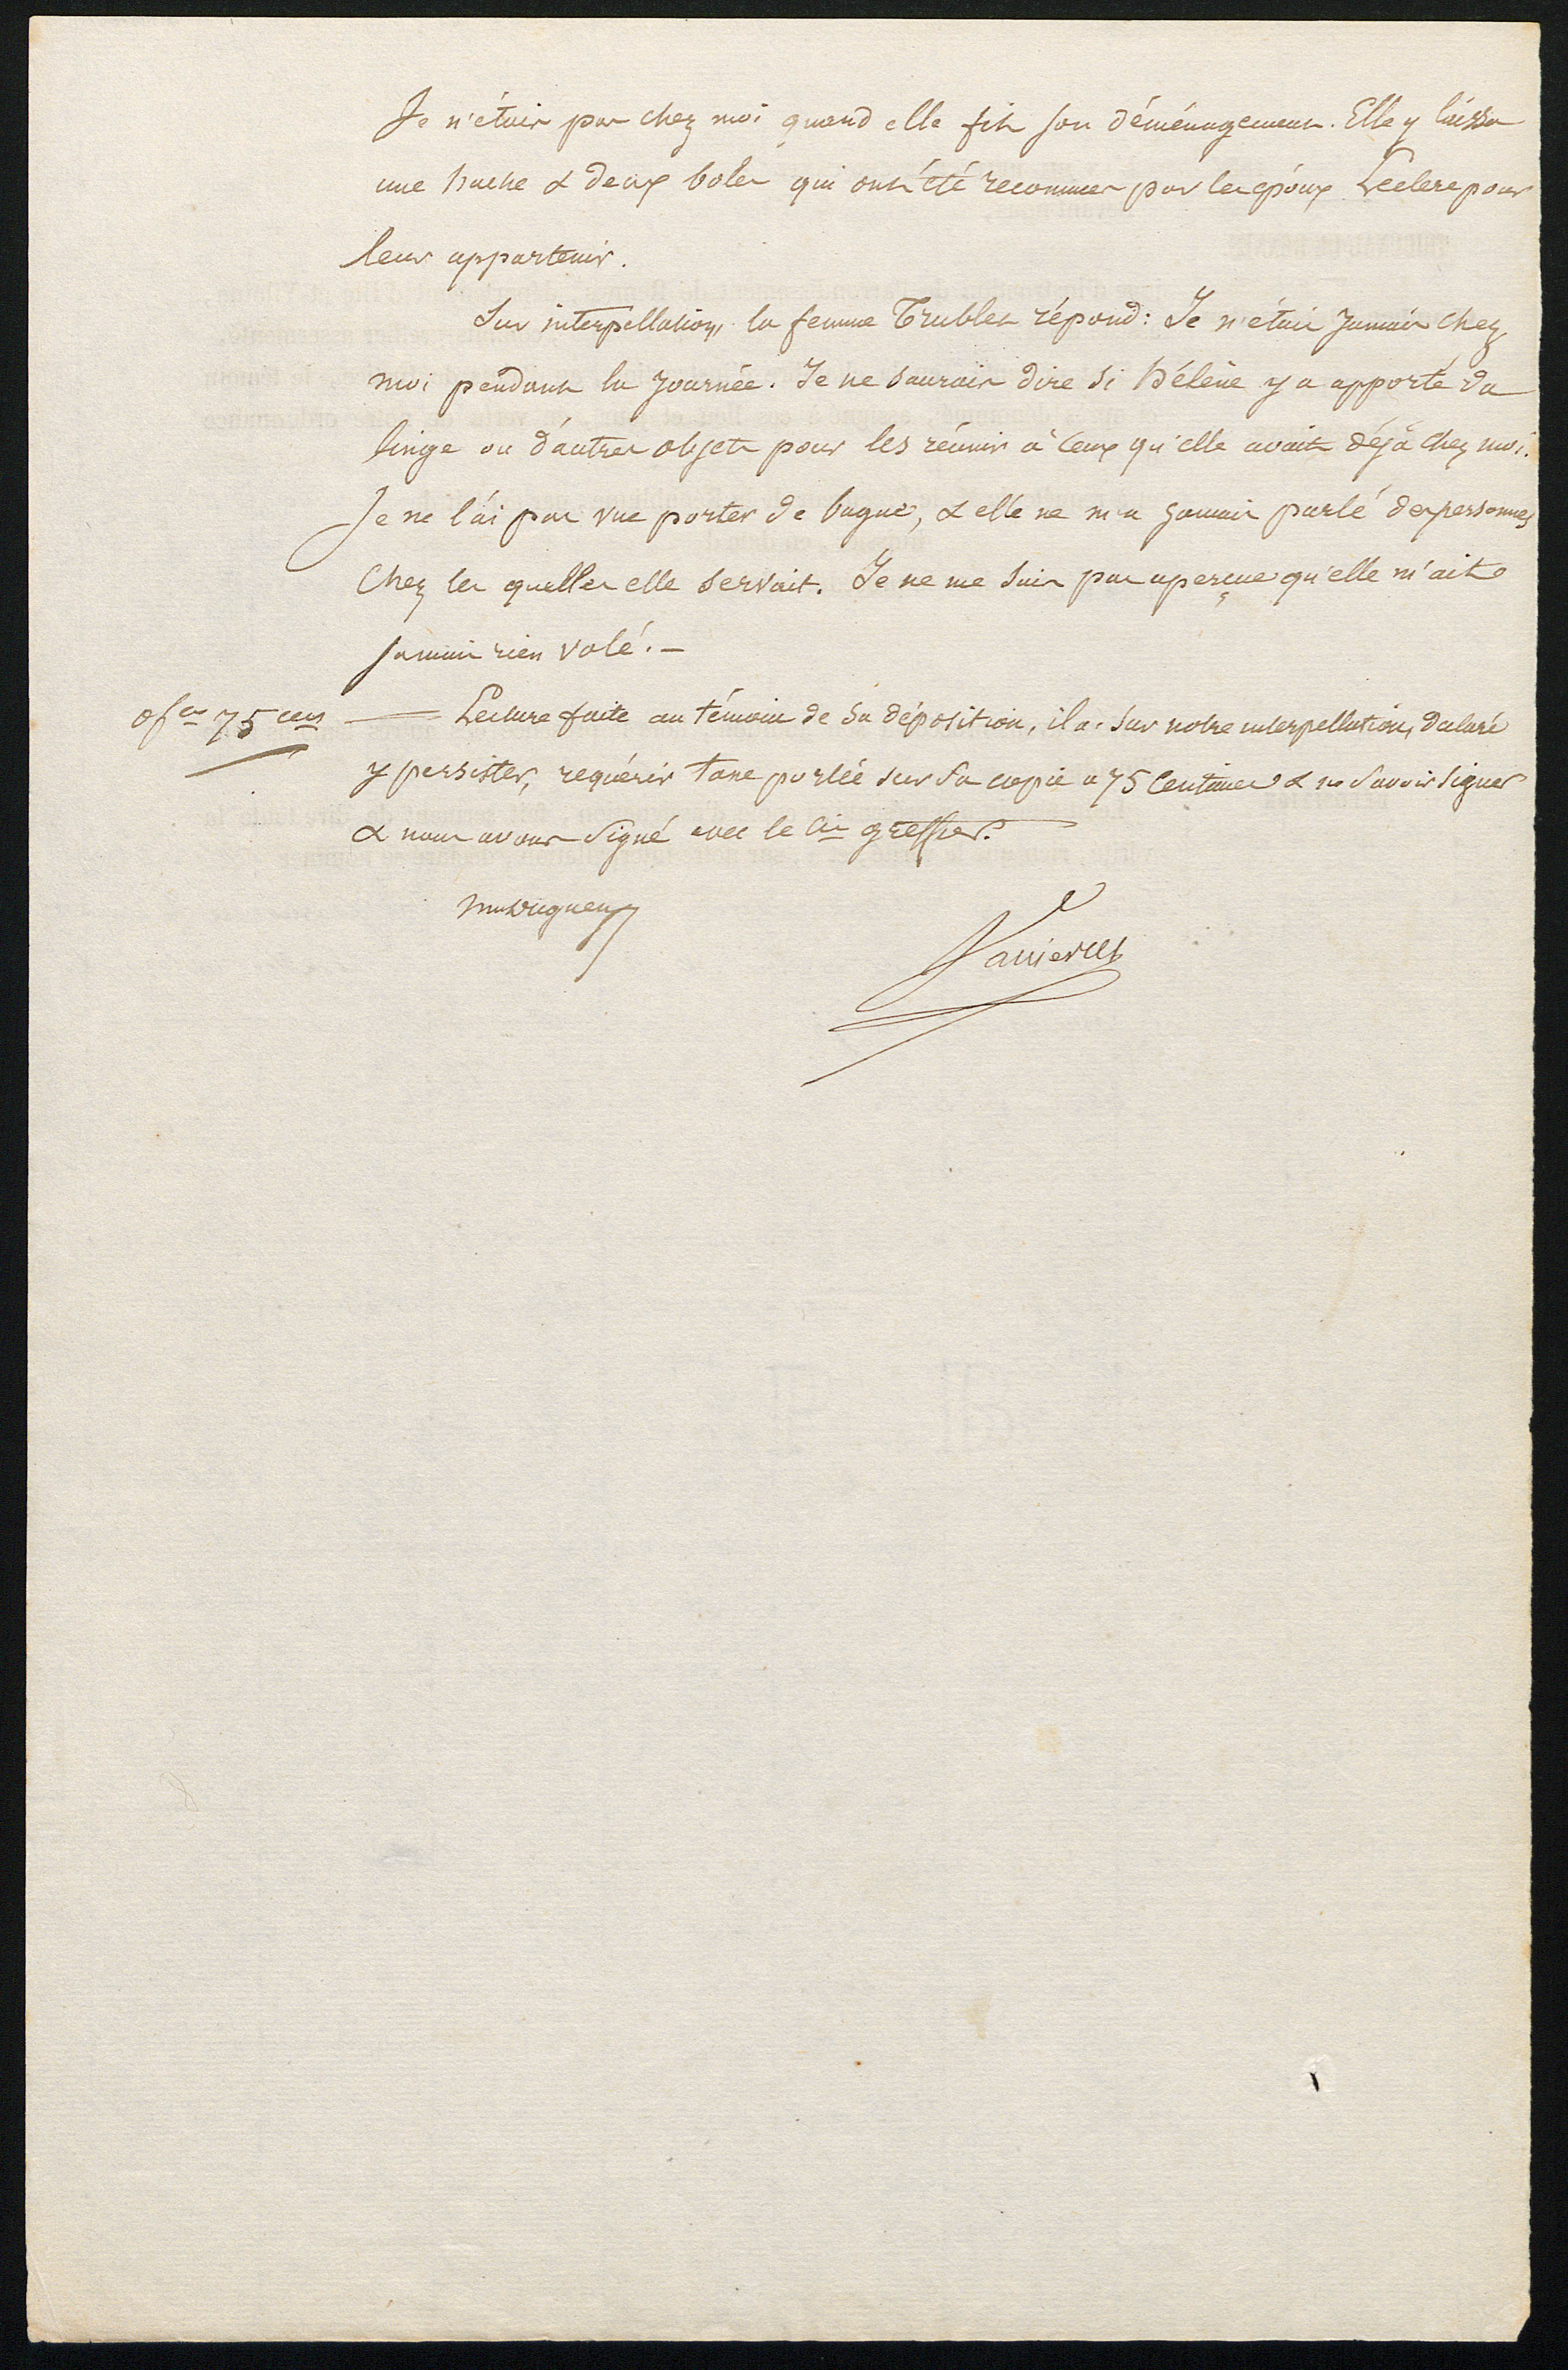 Je n'étais pas chez moi quand elle fit son déménagement. Elle y laissa
une hache & deux boles qui ont été reconnues par les époux Leclerc pour
leur appartenir.
Sur interpellation, la femme Trublet répond : Je n'étais jamais chez
moi pendant la journée. Je ne saurais dire si Hélène y a apporté du
linge ou d'autres objets pour les réunir à ceux qu'elle avait déjà chez moi.
Je ne l'ai pas vue porter de bague, & elle ne m'a jamais parlé des personnes
chez les quelles elle servait. Je ne me suis pas aperçue qu'elle m'ait
jamais rien volé. —
0 fcs 75 ces — Lecture faite au témoin de sa déposition, il a, sur notre interpellation, déclaré
y persister, requérir taxe portée sur sa copie à 75 centimes & ne savoir signer
& nous avons signé avec le Cis greffier.
Vannier VCt